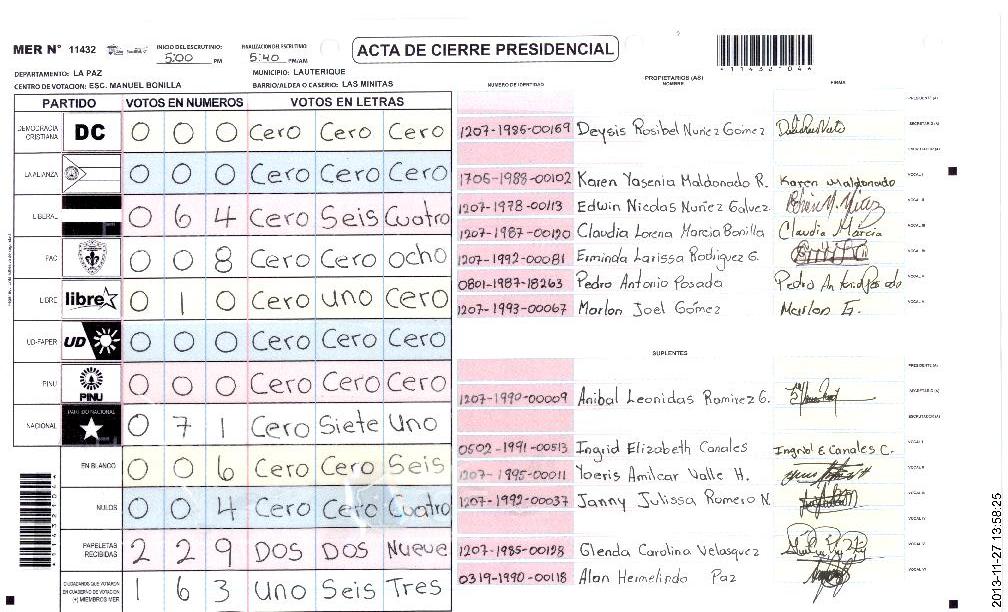 MER N° 11432
INICIO DEL ESCRUTINIO: 5:00 PM
FINALIZACION DEL ESCRUTINIO 5:40 PM/AM
ACTA DE CIERRE PRESIDENCIAL
DEPARTAMENTO: LA PAZ
MUNICIPIO: LAUTERIQUE
CENTRO DE VOTACION: ESC. MANUEL BONILLA
BARRIO/ALDEA O CASERIO: LAS MINITAS
PARTIDO VOTOS EN NUMEROS VOTOS EN LETRAS
DEMOCRACIA CRISTIANA DC 0 0 0 Cero Cero Cero
LA ALIANZA 0 0 0 Cero Cero Cero
LIBERAL 0 6 4 Cero Seis Cuatro
PAC 0 0 8 Cero Cero ocho
LIBRE libre 0 1 0 Cero uno Cero
UD-FAPER UD 0 0 0 Cero Cero Cero
PINU PINU 0 0 0 Cero Cero Cero
NACIONAL PARTIDO NACIONAL 0 7 1 Cero Siete Uno
EN BLANCO 0 0 6 Cero Cero Seis
NULOS 0 0 4 Cero Cero Cuatro
PAPELETAS RECIBIDAS 2 2 9 DOS DOS Nueve
CIUDADANOS QUE VOTARON EN CUADERNO DE VOTACION (+) MIEMBROS MER 1 6 3 Uno Seis Tres
NUMERO DE IDENTIDAD
PROPIETARIOS (AS)
NOMBRE
FIRMA
1207-1985-00159 Deysis Rosibel Nuñez Gomez
1706-1988-00102 Karen Yasenia Maldonado R. Karen Maldonado
1207-1978-00113 Edwin Nicolas Nuñez Galvez
1207-1987-00120 Claudia Lorena Marcia Bonilla Claudia Marcia
1207-1992-00081 Erminda Larissa Rodriguez G.
0801-1987-18263 Pedro Antonio Posada
1207-1993-00067 Marlon Joel Gómez Marlon G.
SUPLENTES
1207-1990-00009 Anibal Leonidas Ramirez G.
0502-1991-00513 Ingrid Elizabeth Canales Ingrid E Canales C.
1207-1995-00011 Yoeris Amilcar Valle H.
1207-1992-00037 Janny Julissa Romero N.
1207-1985-00128 Glenda Carolina Velasquez
0319-1990-00118 Alan Hermelindo Paz
2013-11-27 13:58:25